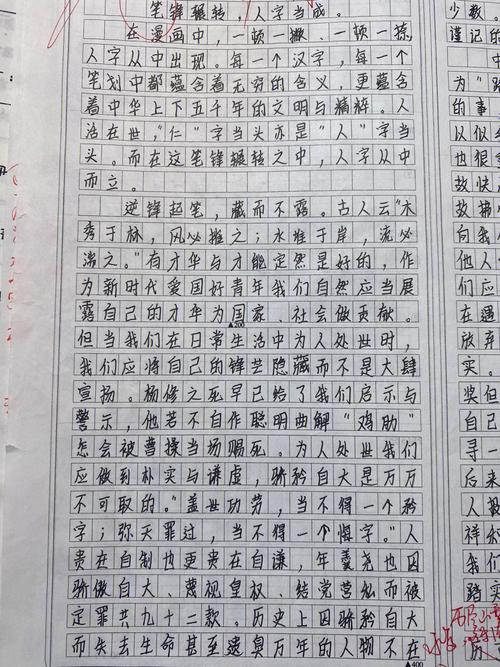 笔锋辗转，人字当成。
在漫画中，一顿一撇、一顿一捺，
人字从中出现。每一个汉字，每一个
笔划中都蕴含着无穷的含义，更蕴含
着中华上下五千年的文明与精粹。人
活在世，“仁”字当头亦是“人”字当
头。而在这笔锋辗转之中，人字从中
而立。
逆锋起笔，藏而不露。古人云“木
秀于林，风必摧之；水堆于岸，流必
湍之。”有才华与才能定然是好的，作
为新时代爱国好青年我们自然应当展
露自己的才华为国家、社会做贡献。
但当我们在日常生活中为人处世时，
我们应将自己的锋芒隐藏而不是大肆
宣扬。杨修之死早已给了我们启示与
警示，他若不自作聪明曲解“鸡肋”
怎会被曹操当场赐死。为人处世我们
应做到朴实与谦虚，骄矜自大是万万
不可取的。“盖世功劳，当不得一个矜
字；弥天罪过，当不得一个悔字。”人
贵在自制也更贵在自谦，年羹尧也因
骄傲自大、蔑视皇权、结党营私而被
定罪共九十二款。历史上因骄矜自大
而失去生命甚至遗臭万年的人物不在
▲200
▲400
少数
谨记的
中
为“路
的事
以似
也很
故快
故拂
向我
他人
们应
在遇
放弃
实。
奖但
自己
寻一
后来
人投
祥
我们
踏实
历